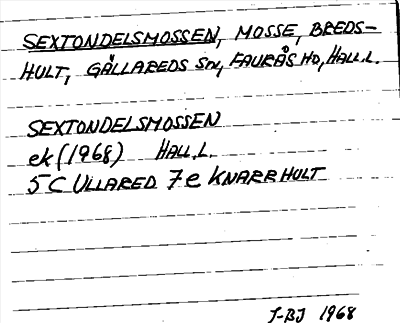 SEXTONDELSMOSSEN, MOSSE, BREDS-
HULT, GÄLLAREDS SN, FAURÅS HD, HALL.L.
SEXTONDELSMOSSEN
ek (1968) HALL.L.
5C ULLARED 7e KNARRHULT
I-BJ 1968